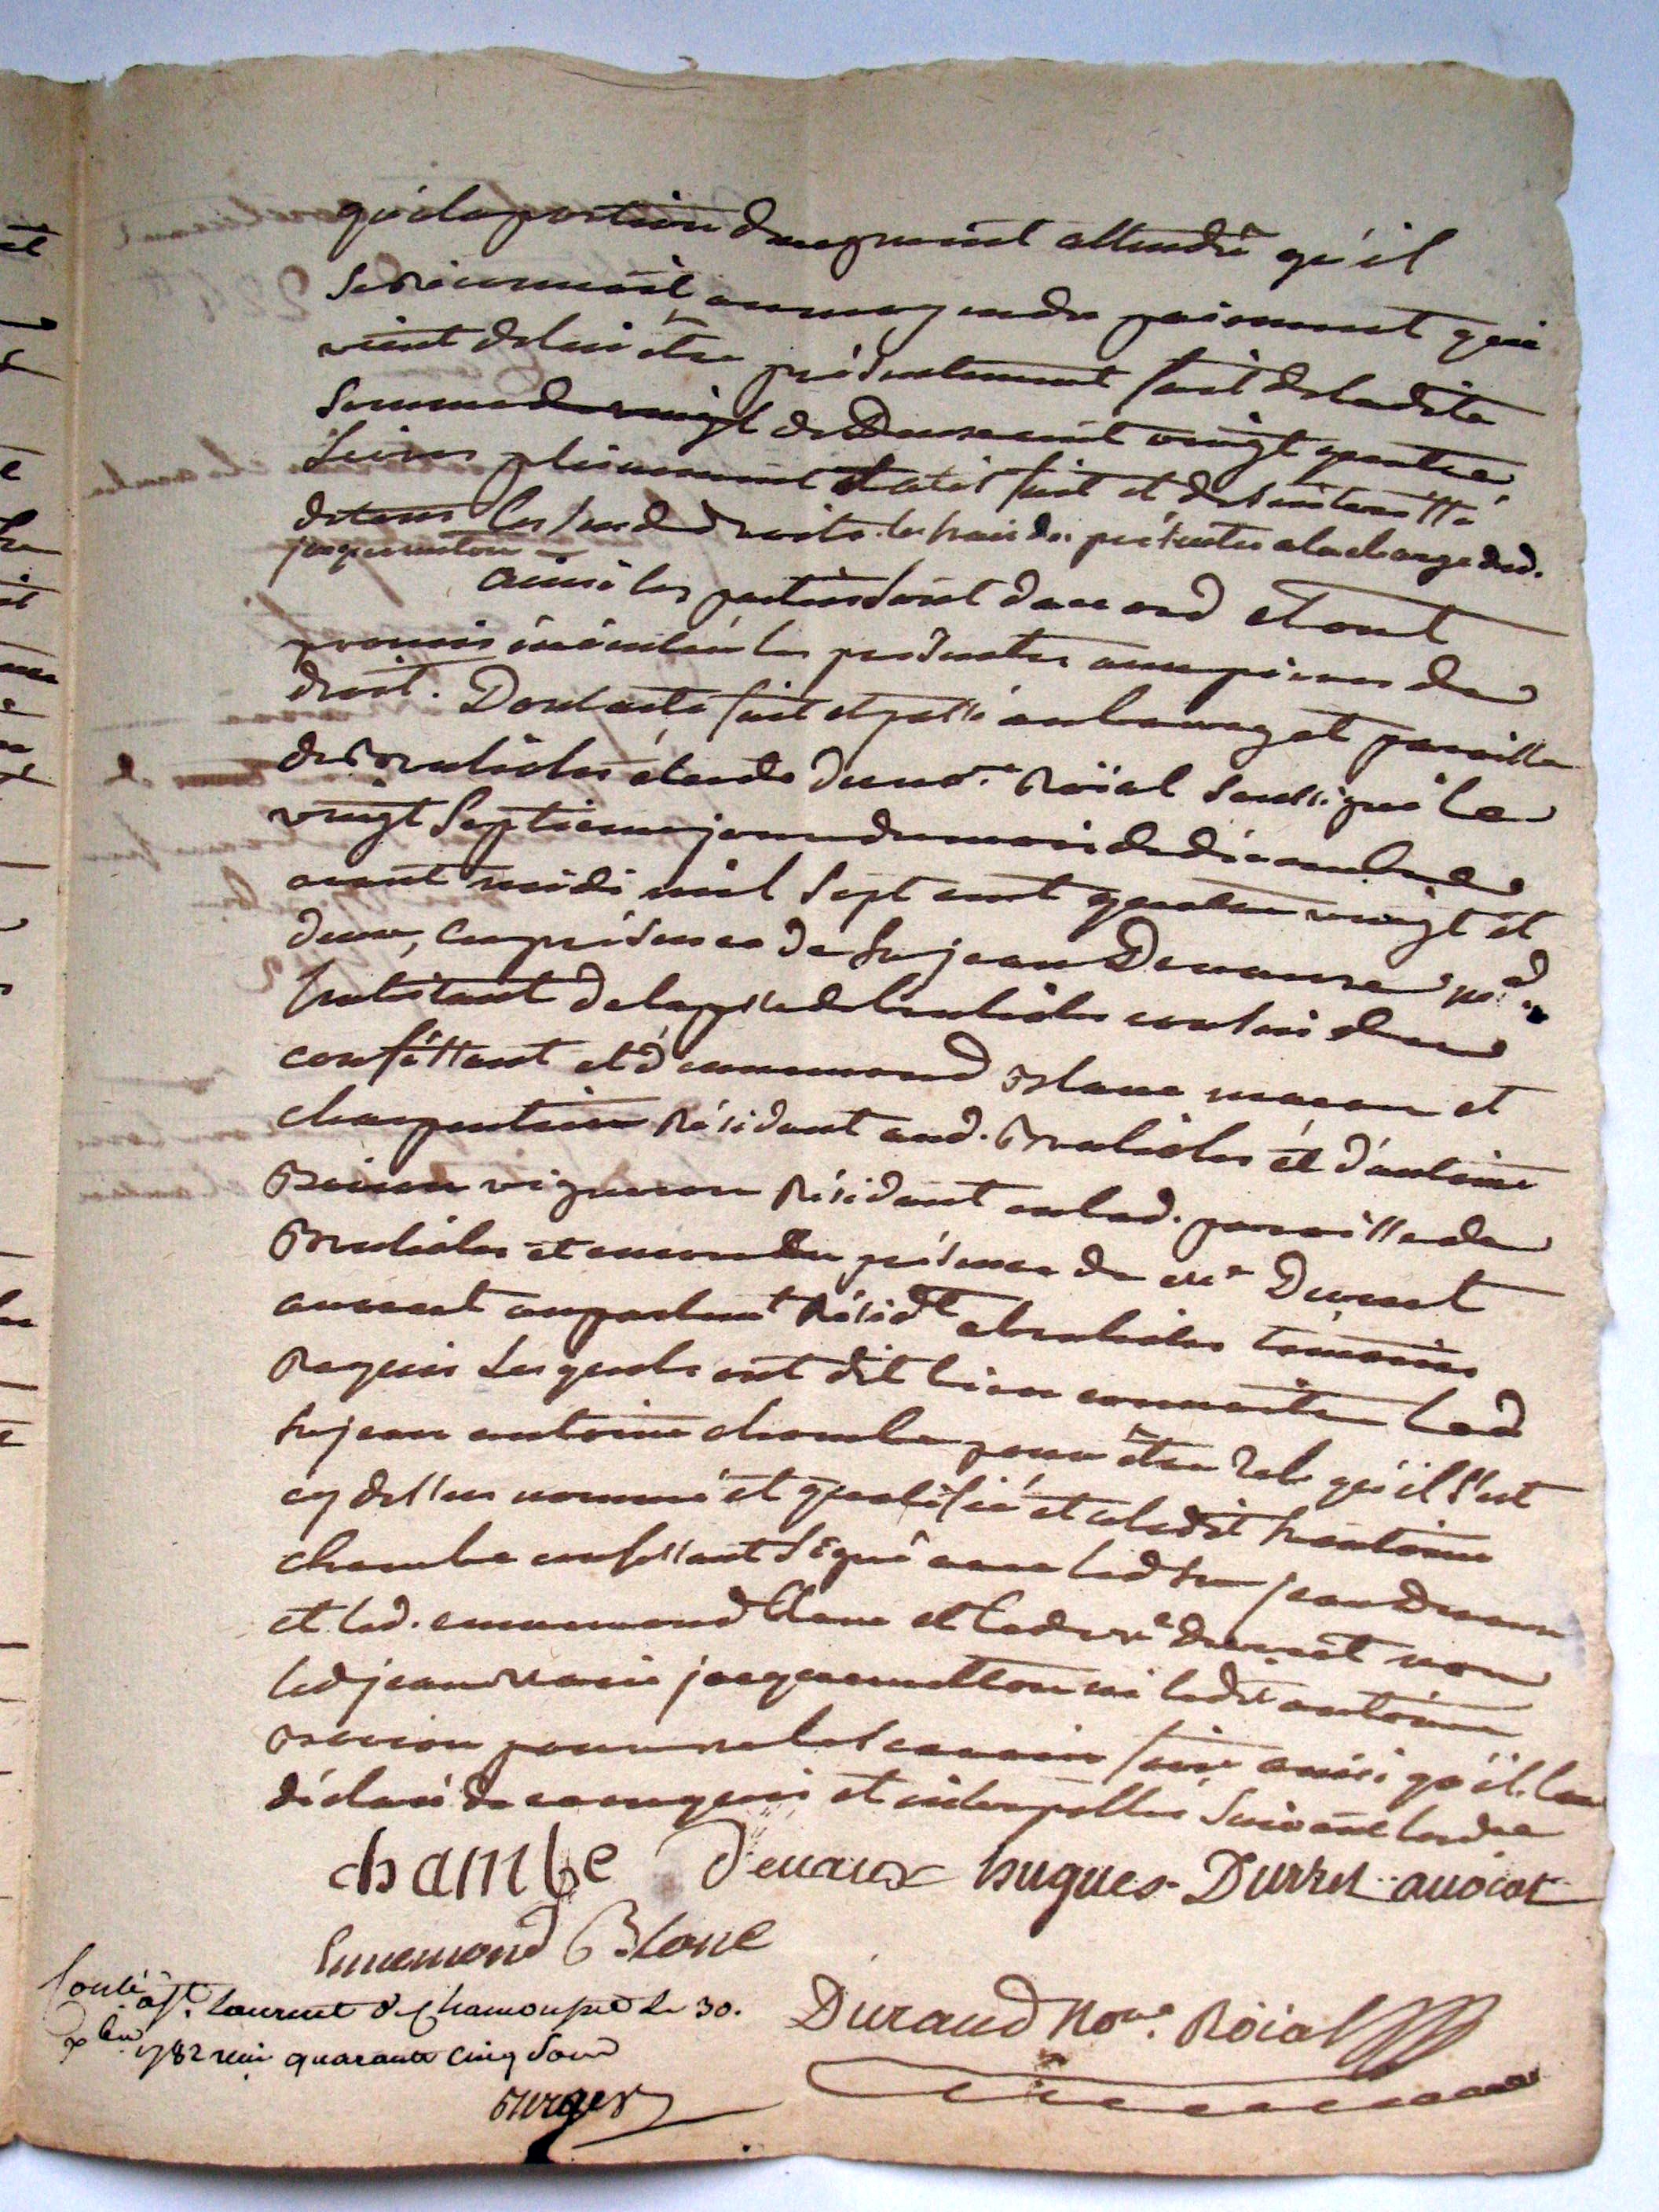 qu'à la portion d'argument attendu qu'il
se reconnoit au moyen du paiement qui
vient de lui être présentement fait de ladite
somme de vingt de Deux cent vingt quatre
Livres pleinement satisfait et désintéressé
de tous les susd. droits. les frais des présentes a la charge dud.
jaquemeton
ainsi les parties sont d'accord et ont
promis éxécuter les présentes aux peines de
droit. Dont acte fait et passé au bourg et paroisse
de Brulioles étude du no.re Roïal soussigné le
vingt septieme jour du mois de décembre
avant midi mil sept cent quatre vingt et
deux, en présence de Sr jean Devaux
habitant de la psse de brulioles
et d'ennemond Blanc macon et
charpentier Résidant aud. Brulioles et d'antoine
vigneron Résidant en lad. paroisse de
Brulioles et encore en présence de Me Durret
avocat en parlemt Résidt a brulioles témoins
Requis Lesquels ont dit bien connoitre led
Sr jean antoine chambe pour être tel qu'il s'est
cy dessus nommé et qualifié et a ledit Sr antoine
chambe confessant signé avec led Sr jean Devaux
et led. ennemond Blanc et led Me durret non
led jean marie jacquemetton ni ledit antoine
pour ne le scavoir faire ainsi qu'il l'ont
déclaré de ce enquis et interpellés suivant l'ordce
chambe Devaux hugues Durret avocat
Ennemond Blanc
Conlé a St. Laurent de Chamousset le 30.
xbre 1782 reçu quarante cinq sous
Durand Nore. Roïal